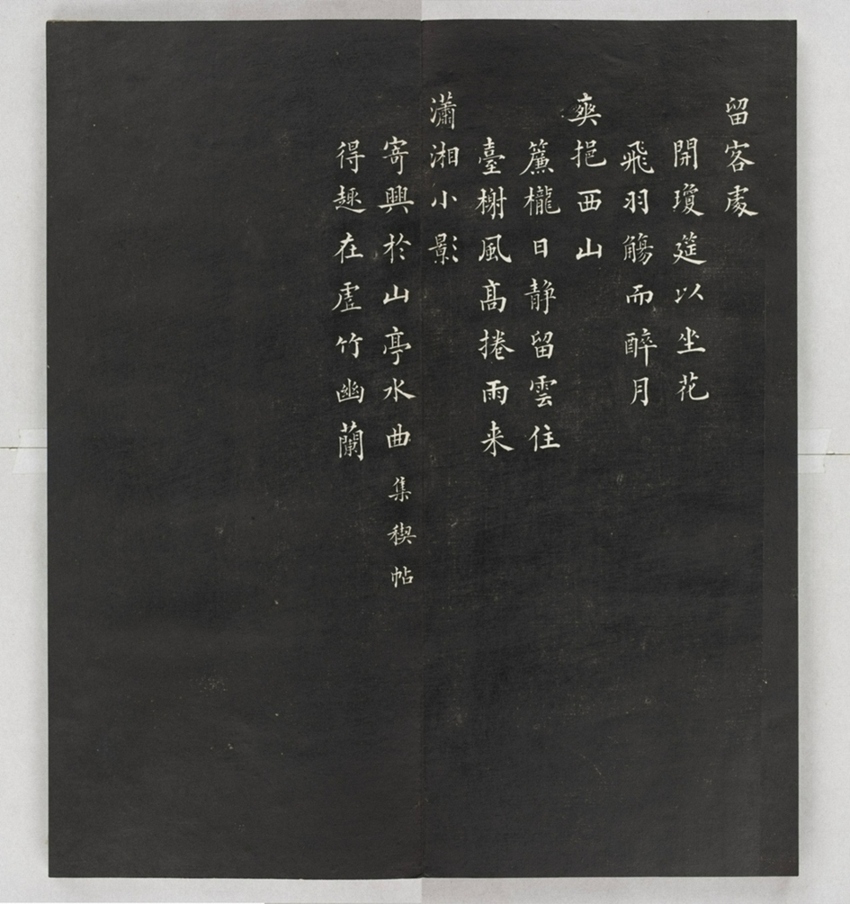 留客處
開瓊筵以坐花
飛羽觴而醉月
爽挹西山
簾櫳日靜留雲住
臺榭風高捲雨来
瀟湘小影
寄興於山亭水曲 集禊帖
得趣在虛竹幽蘭